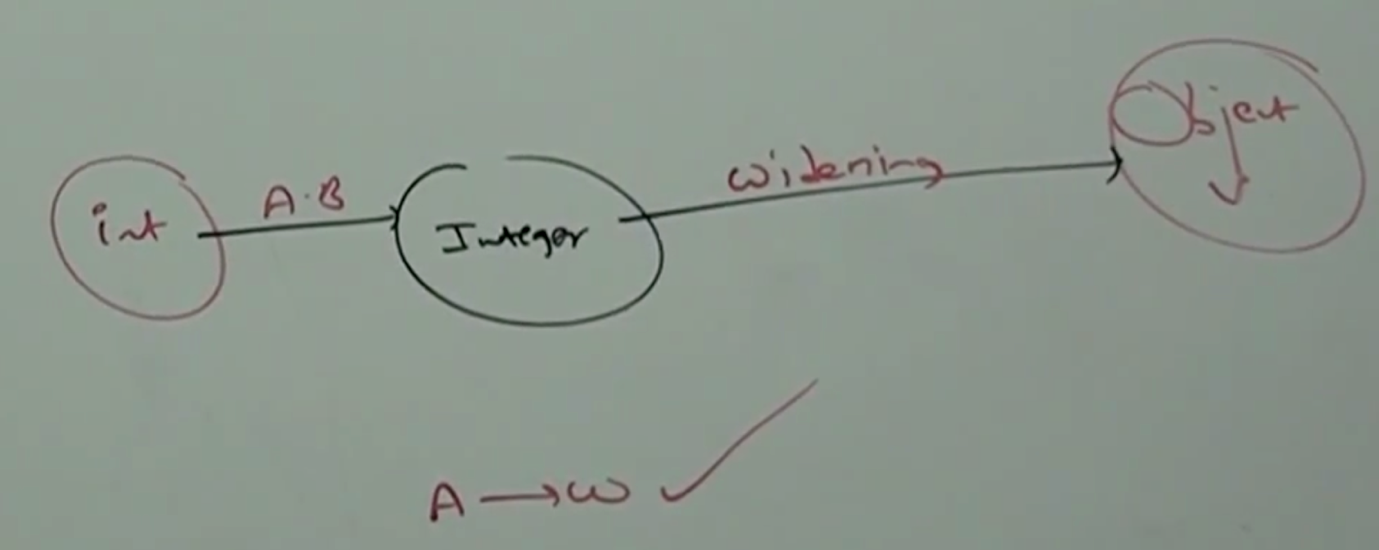 int A.B Integer widening Object
A → w ✓